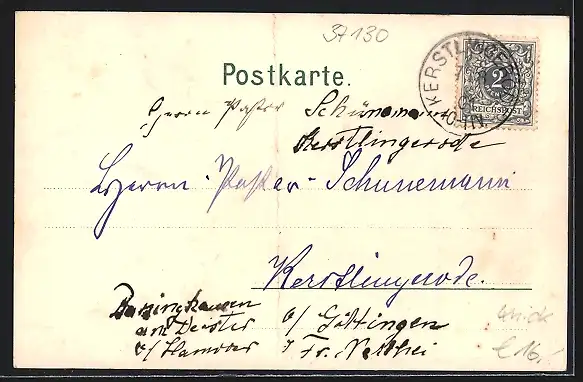 37130
Postkarte.
KERSTLINGERODE
10-11 N
2
REICHSPOST
Herrn Pastor Schünemann
Kerstlingerode
Herrn Pastor Schünemann
Kerstlingerode.
Barsinghausen
am Deister
b/ Hannover
b/ Göttingen
€ 16,-